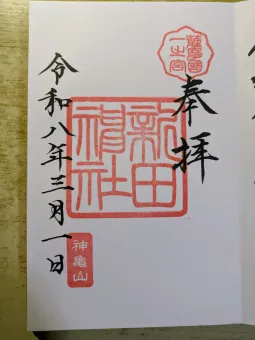 薩摩國
一之宮
奉拝
新田
神社
令和八年三月一日
神亀山